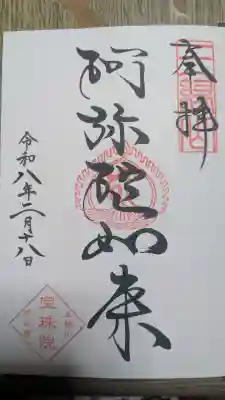 奉拝
阿弥陀如来
令和八年二月十八日
宝珠院